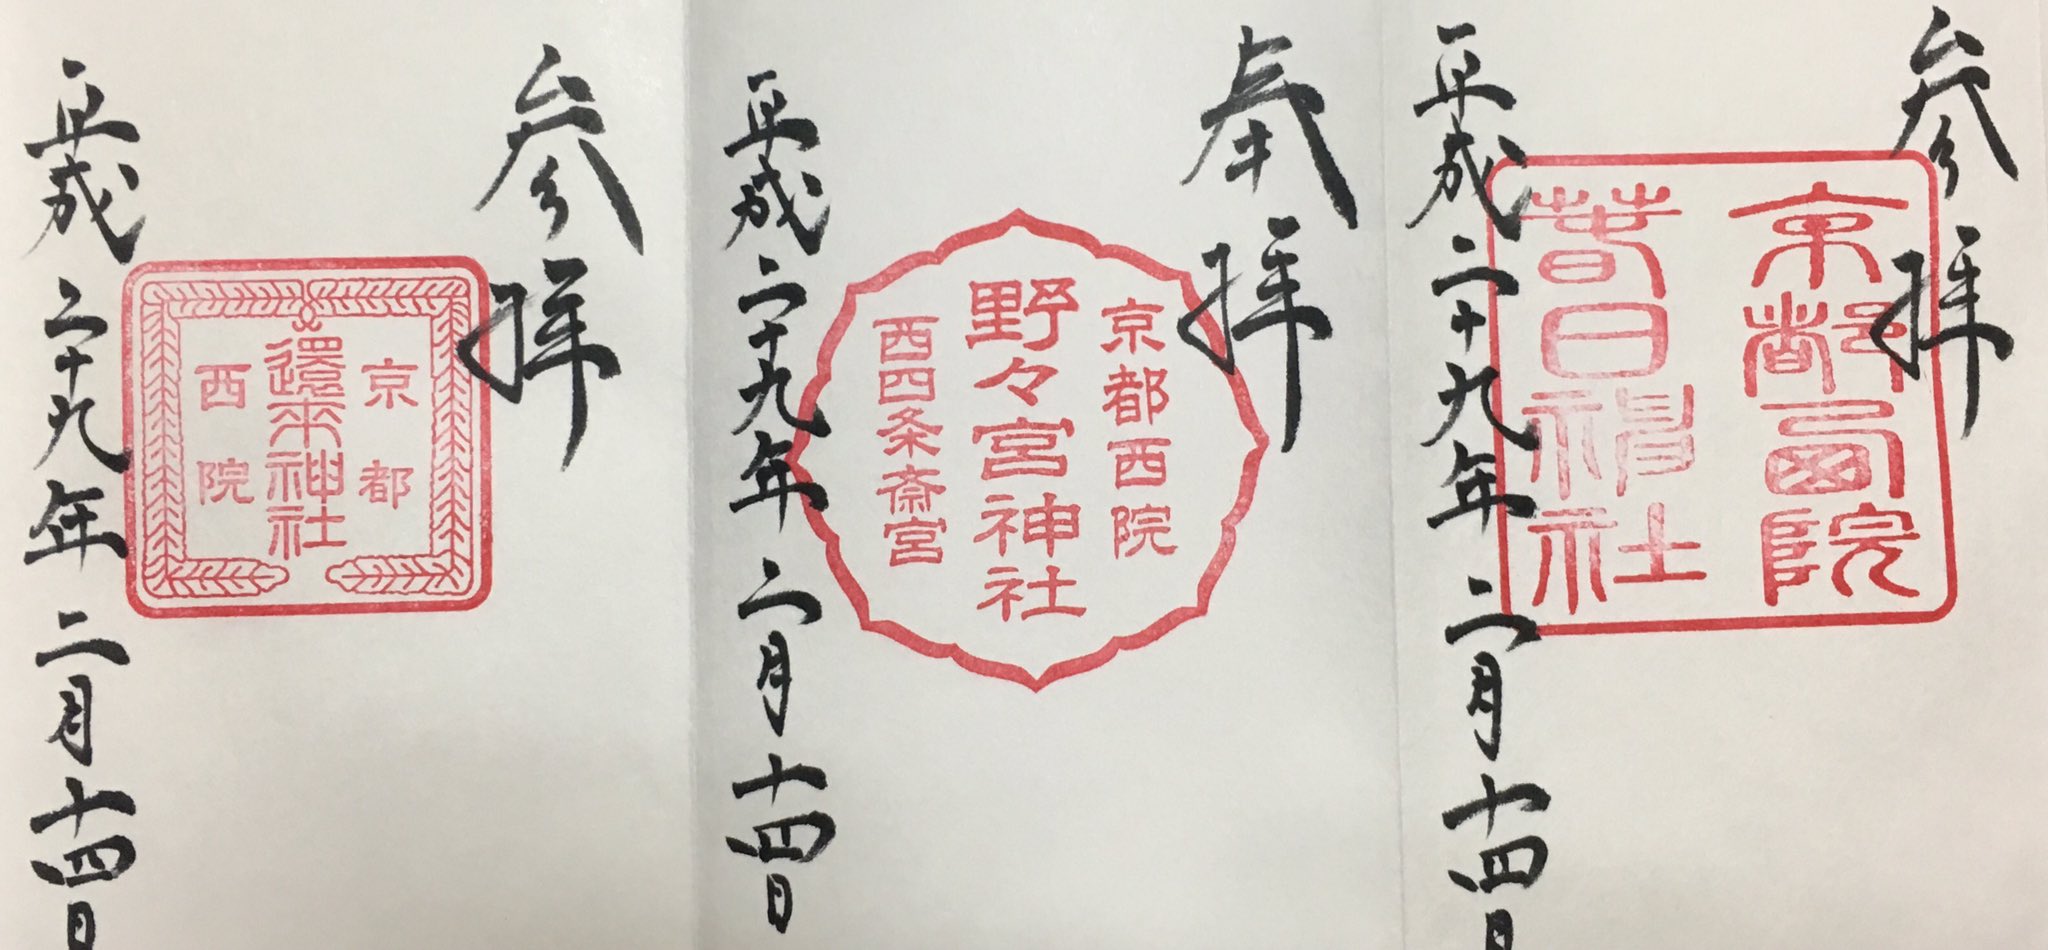 参拝
京都西院
春日神社
平成二十九年二月十四日
奉拝
京都西院
野々宮神社
西四条斎宮
平成二十九年二月十四日
参拝
京都
還来神社
西院
平成二十九年二月十四日